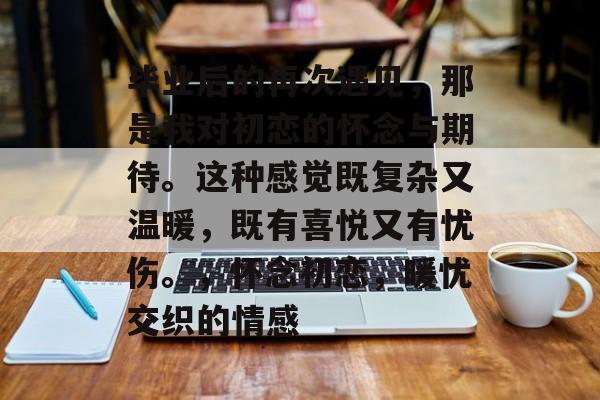 毕业后的再次遇见，那
是我对初恋的怀念与期
待。这种感觉既复杂又
温暖，既有喜悦又有忧
伤。，怀念初恋，暖忧
交织的情感